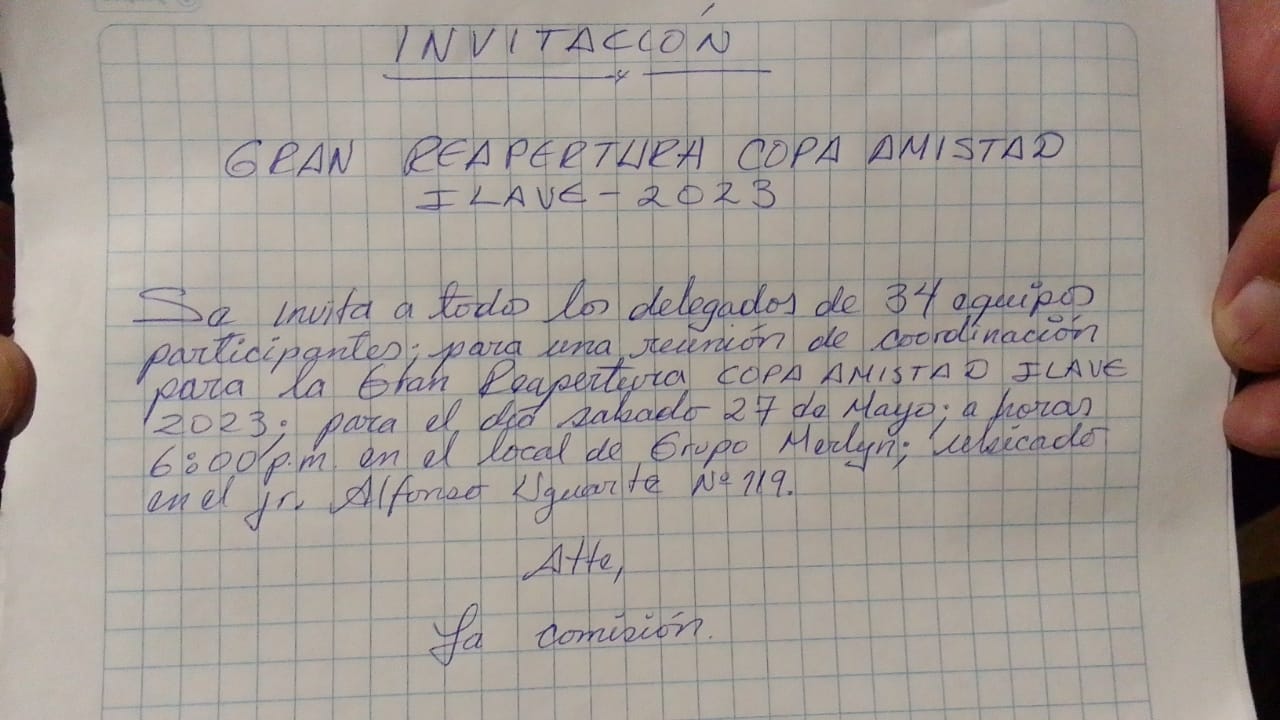 INVITACIÓN
GRAN REAPERTURA COPA AMISTAD
ILAVE - 2023
Se invita a todo los delegados de 34 equipos
participantes; para una reunión de coordinación
para la Gran Reapertura COPA AMISTAD ILAVE
2023; para el día sabado 27 de Mayo; a horas
6:00 p.m. en el local de Grupo Merlyn; ubicado
en el jr. Alfonso Uguarte Nº 119.
Atte,
La comisión.